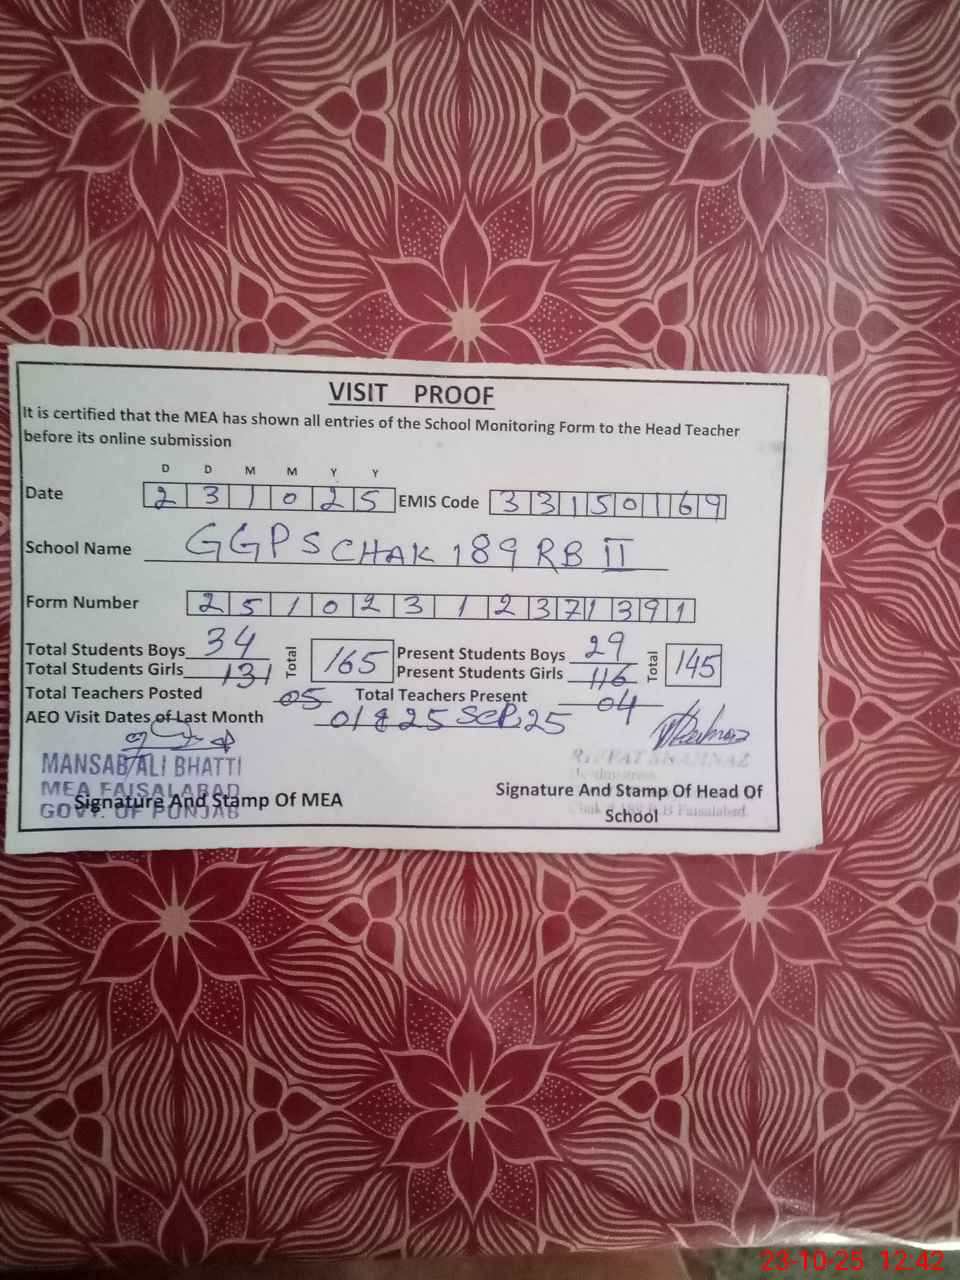 VISIT PROOF
It is certified that the MEA has shown all entries of the School Monitoring Form to the Head Teacher
before its online submission
D D M M Y Y
Date 2 3 1 0 2 5 EMIS Code 3 3 1 5 0 1 6 9
School Name GGPS CHAK 189 RB II
Form Number 2 5 1 0 2 3 1 2 3 7 1 3 9 1
Total Students Boys 34 Total 165 Present Students Boys 29 Total 145
Total Students Girls 131 Present Students Girls 116
Total Teachers Posted 05 Total Teachers Present 04
AEO Visit Dates of Last Month 01 & 25 SEP, 25
MANSAB ALI BHATTI
MEA FAISALABAD
GOVT. OF PUNJAB
Signature And Stamp Of MEA
RIFFAT SHAHNAZ
Signature And Stamp Of Head Of
School
Faisalabad.
23-10-25 12:42